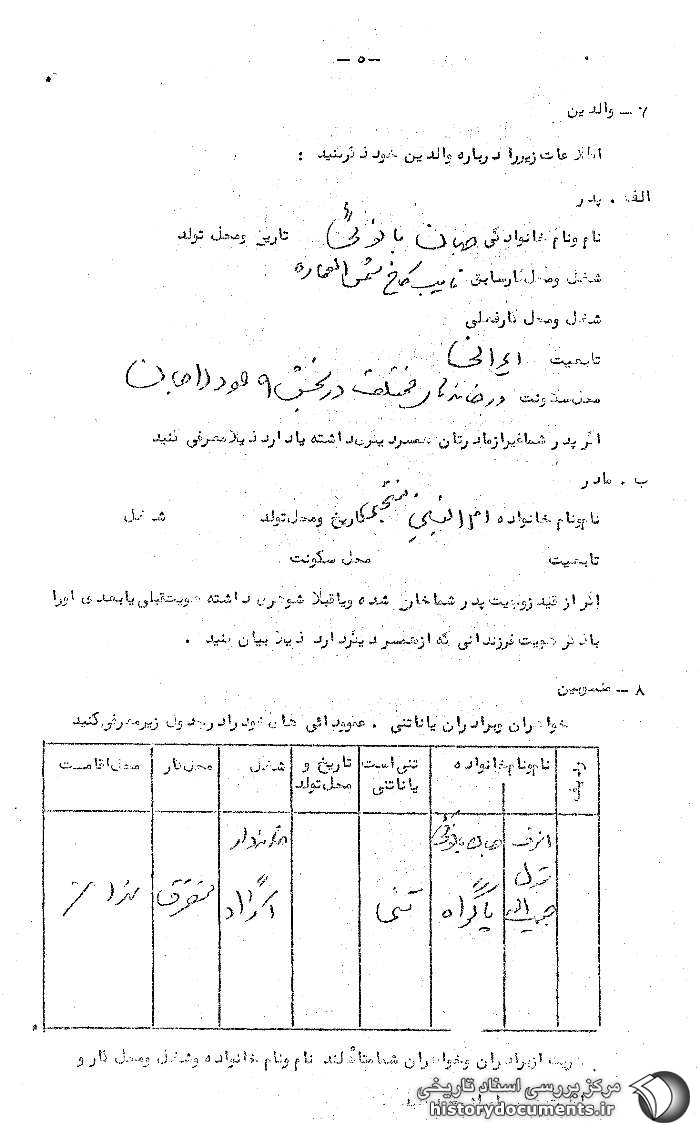 — ۵ —
۷ — والدین
اطلاعات زیر را درباره والدین خود ذکر کنید :
الف . پدر
نام و نام خانوادگی تاریخ و محل تولد
شغل و محل کار سابق نایب کاخ شمس العماره
شغل و محل کار فعلی
تابعیت ایرانی
محل سکونت در خانه های مختلف در بخش ۹ حدود
اگر پدر شما غیر از مادرتان همسر دیگری داشته یا دارد ذیلا معرفی کنید
ب . مادر
نام و نام خانواده ام النبی تاریخ و محل تولد شغل
تابعیت محل سکونت
اگر از قید زوجیت پدر شما خارج شده و یا قبلا شوهری داشته هویت قبلی یا بعدی او را
با ذکر هویت فرزندانی که از همسر دیگر دارد ذیلا بیان کنید .
۸ — منسوبین
خواهران و برادران یا ناتنی . عمو و دائی های خود را در جدول زیر معرفی کنید
ردیف نام و نام خانواده تنی است یا ناتنی تاریخ و محل تولد شغل محل کار محل اقامت
اشرف خانه‌دار
جمیله تنی آزاد متفرقه
از برادران و خواهران شما متأهلند نام و نام خانواده و شغل و محل کار و
مرکز بررسی اسناد تاریخی
historydocuments.ir